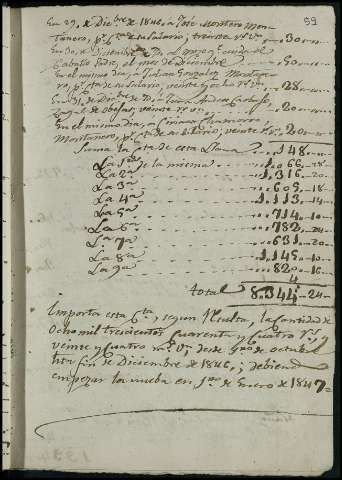 59
En 29, de Dicbre de 1846, a José Montero Mon-
tañero, pr. cta de su salario, treinta rs. vn. 30
En 30, de Diciembre
Caballo Padre, el mes de Diciembre 50
En el mismo dia, a Julian Gonzalez Montañe-
ro, pr. cta de su salario, veinte y ocho rs. vn. 28
En 31, de Dicbre de
Zagal de obejas, veinte rs. vn. 20
En el mismo dia, a Ciriaco Chamorro,
Montañero, pr. cta de su salario, veinte rs. vn. 20
Suma la cta de esta Llana 148
La 1ra de la misma 1.066
La 2a 1.316 20
La 3a 605 18
La 4a 1.113 14
La 5a 714 10
La 6a 782 24
La 7a 631 20
La 8a 1.145 10
La 9a 820 16
4
Total 8.344 24
Importa esta cta, segun resulta, la cantidad de
Ocho mil trescientos Cuarenta y Cuatro rs. y
veinte y Cuatro ms. vn. desde 1ro de octubre
hta fin de Diciembre de 1846,; debiendo
empezar la nueba en 1ro de Enero de 1847